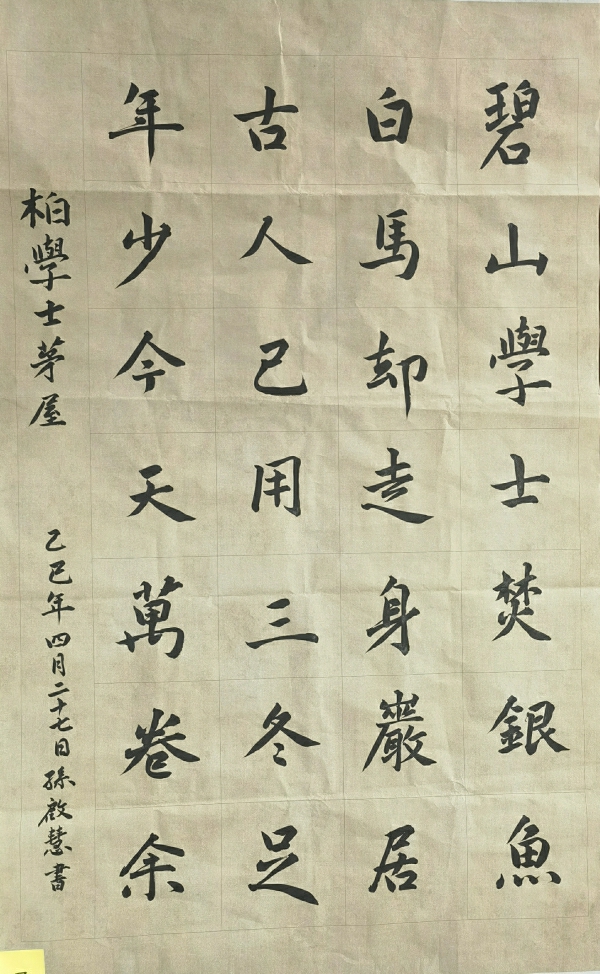 碧山學士焚銀魚
白馬却走身巖居
古人已用三冬足
年少今天萬卷余
柏學士茅屋
乙巳年四月二十七日孫啟慧書